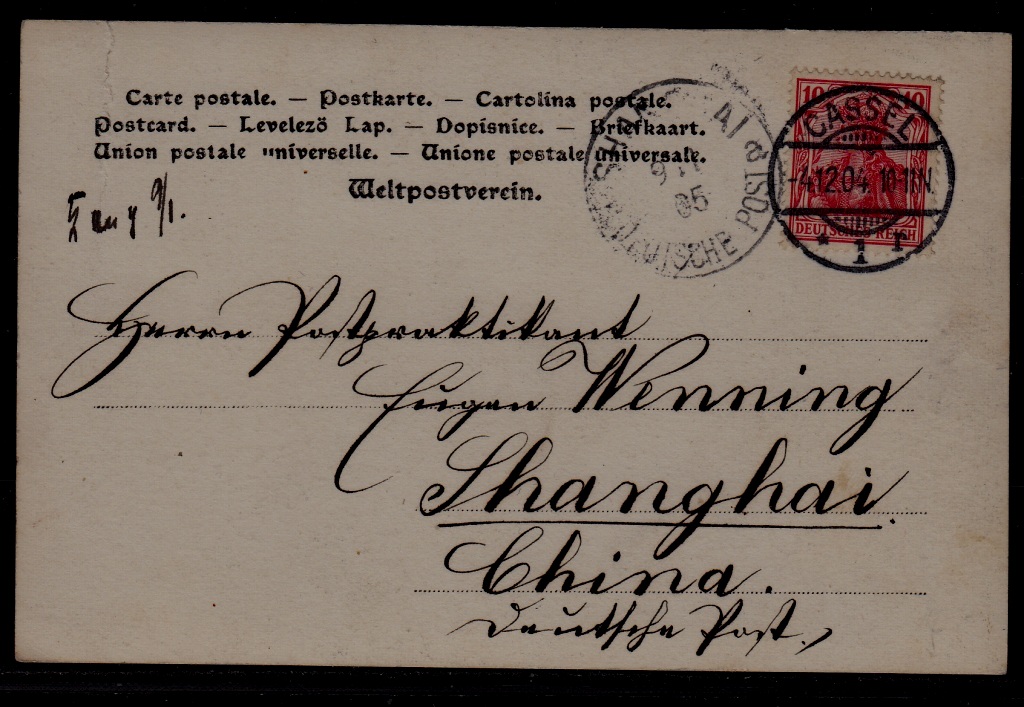 Carte postale. — Postkarte. — Cartolina postale.
Postcard. — Levelezö Lap. — Dopisnice. — Briefkaart.
Union postale universelle. — Unione postale universale.
Weltpostverein.
SHANGHAI
DEUTSCHE POST
05
10 10
CASSEL
-4.12.04 10-11N.
* 1 r
DEUTSCHES REICH
Herrn Postpraktikant
Eugen Wenning
Shanghai.
China.
Deutsche Post.